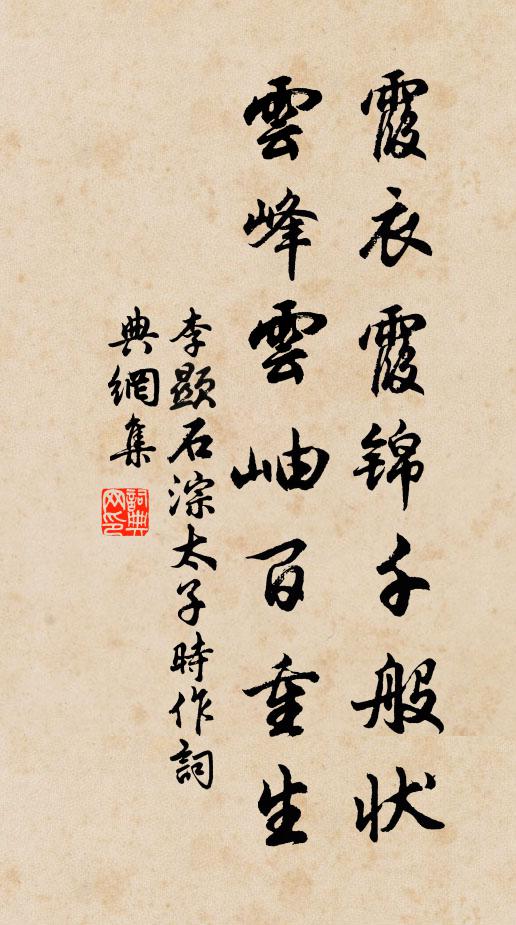 霞衣霞錦千般状
雲峰雲岫百重生
李顯石淙太子時作詞
典網集
詞典網印